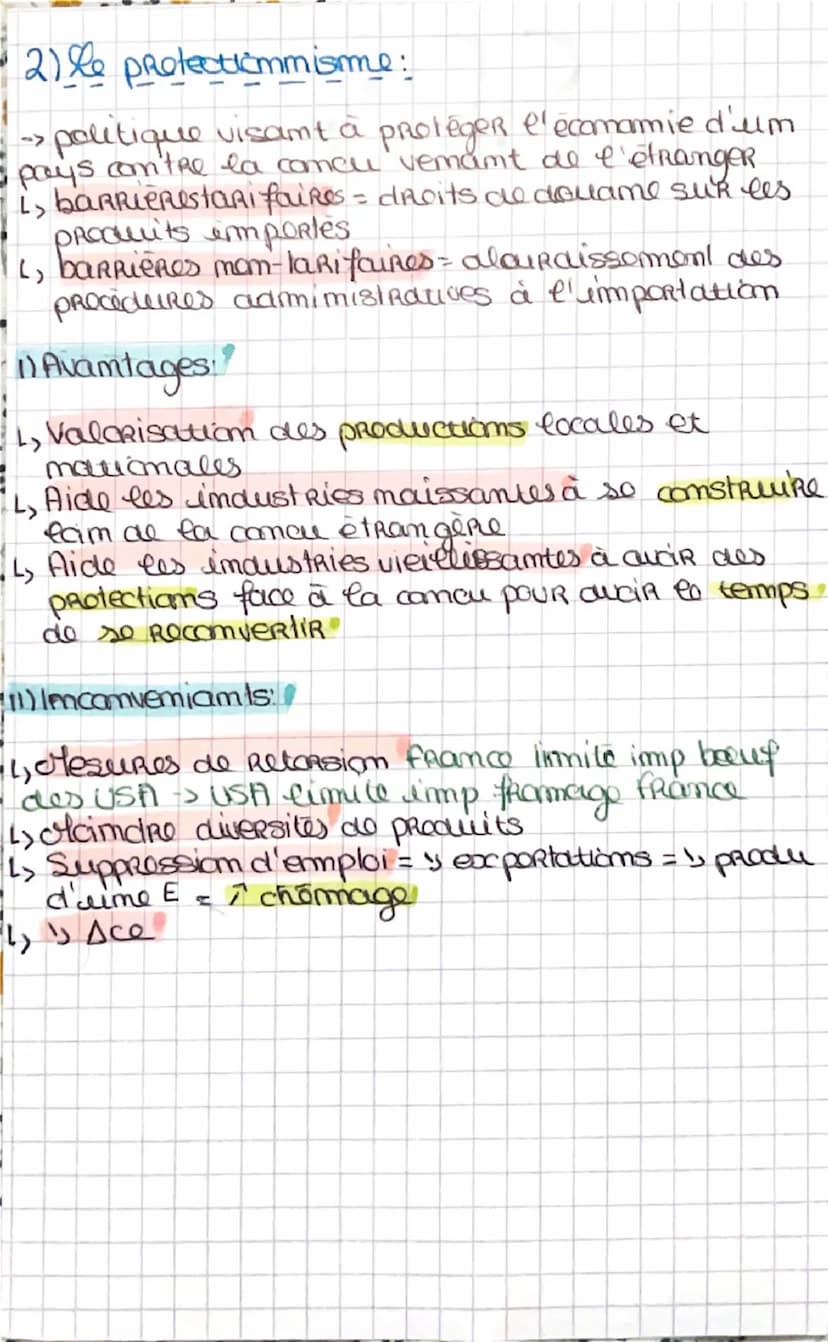 2) Le protectionnisme :
-> politique visant à protéger l'économie d'un
pays contre la concu venant de l'étranger
↳ barrières tarifaires = droits de douane sur les
produits importés
↳ barrières non-tarifaires = alourdissement des
procédures administratives à l'importation
I) Avantages:
↳ Valorisation des productions locales et
nationales
↳ Aide les industries naissantes à se construire
loin de la concu étrangère
↳ Aide les industries vieillissantes à avoir des
protections face à la concu pour avoir le temps
de se reconvertir
II) Inconveniants:
↳ Mesures de retorsion France limite imp boeuf
des USA -> USA limite imp fromage France
↳ Moindre diversités de produits
↳ Suppression d'emploi = ↘ exportations = ↘ produ
d'une E = ↑ chômage
↳ ↘ Δce